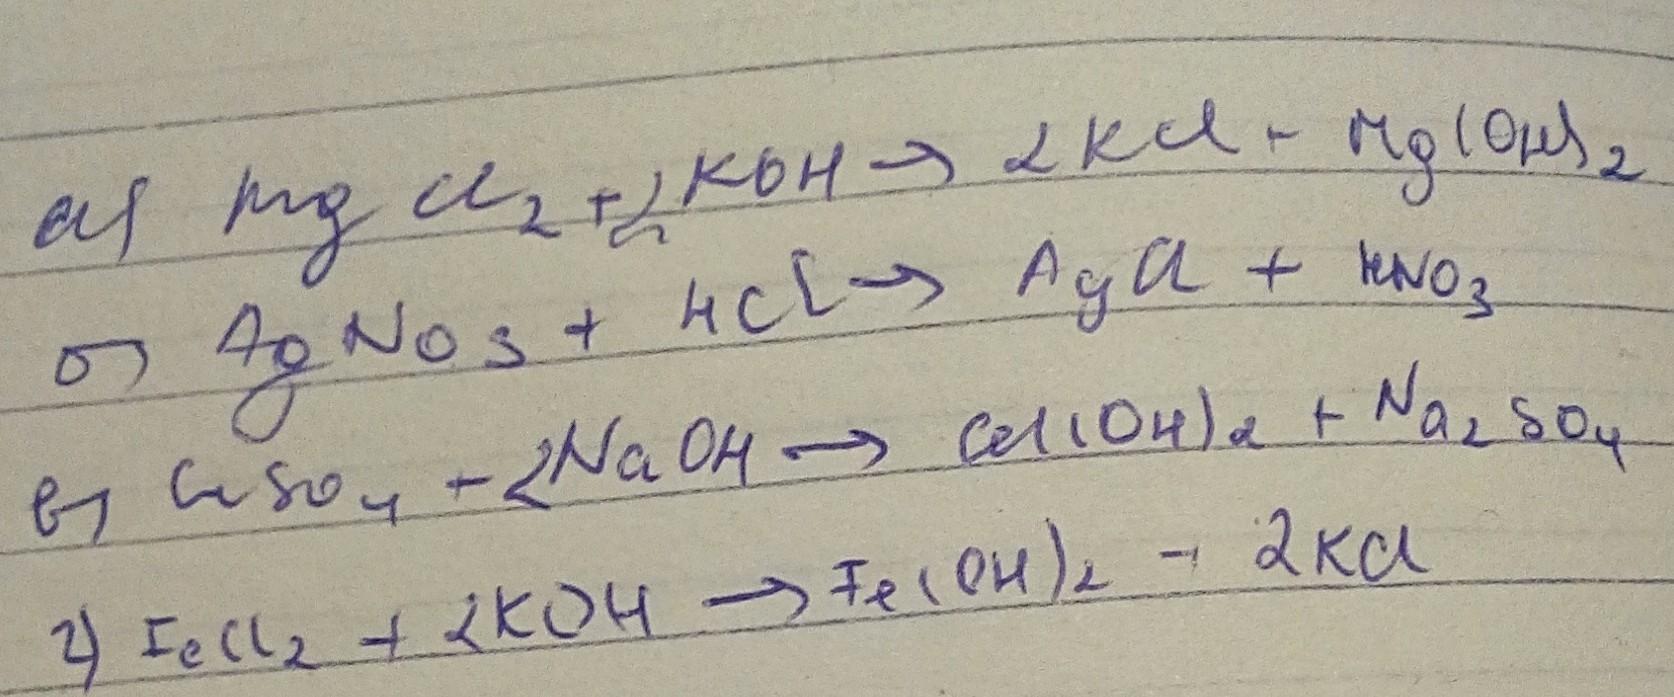 а) MgCl₂ + 2KOH → 2KCl + Mg(OH)₂
б) AgNO₃ + HCl → AgCl + HNO₃
в) CuSO₄ + 2NaOH → Cu(OH)₂ + Na₂SO₄
г) FeCl₂ + 2KOH → Fe(OH)₂ + 2KCl